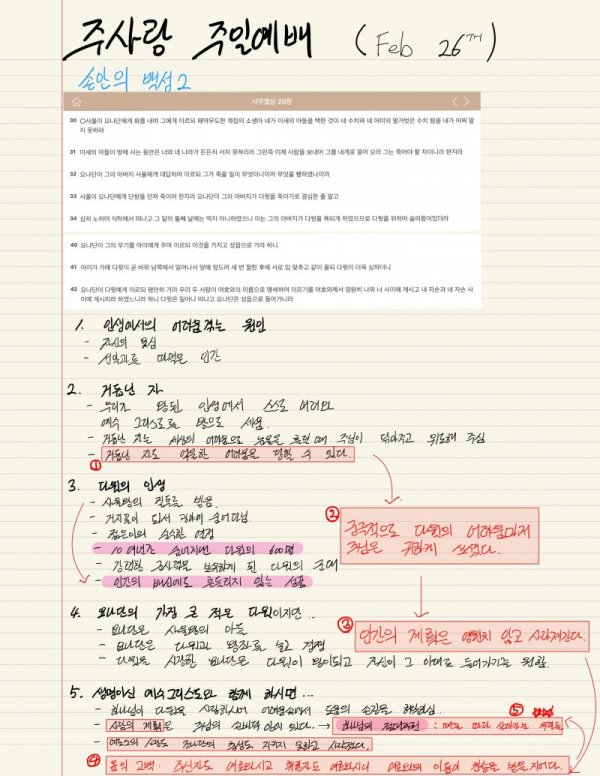 주사랑 주일예배 (Feb 26TH)
손안의 백성2
사무엘상 20장
30 ○사울이 요나단에게 화를 내며 그에게 이르되 패역무도한 계집의 소생아 네가 이새의 아들을 택한 것이 네 수치와 네 어미의 벌거벗은 수치 됨을 내가 어찌 알
지 못하랴
31 이새의 아들이 땅에 사는 동안은 너와 네 나라가 든든히 서지 못하리라 그런즉 이제 사람을 보내어 그를 내게로 끌어 오라 그는 죽어야 할 자이니라 한지라
32 요나단이 그의 아버지 사울에게 대답하여 이르되 그가 죽을 일이 무엇이니이까 무엇을 행하였나이까
33 사울이 요나단에게 단창을 던져 죽이려 한지라 요나단이 그의 아버지가 다윗을 죽이기로 결심한 줄 알고
34 심히 노하여 식탁에서 떠나고 그 달의 둘째 날에는 먹지 아니하였으니 이는 그의 아버지가 다윗을 욕되게 하였으므로 다윗을 위하여 슬퍼함이었더라
40 요나단이 그의 무기를 아이에게 주며 이르되 이것을 가지고 성읍으로 가라 하니
41 아이가 가매 다윗이 곧 바위 남쪽에서 일어나서 땅에 엎드려 세 번 절한 후에 서로 입 맞추고 같이 울되 다윗이 더욱 심하더니
42 요나단이 다윗에게 이르되 평안히 가라 우리 두 사람이 여호와의 이름으로 맹세하여 이르기를 여호와께서 영원히 나와 너 사이에 계시고 내 자손과 네 자손 사
이에 계시리라 하였느니라 하니 다윗은 일어나 떠나고 요나단은 성읍으로 들어가니라
1. 인생에서의 어려움 겪는 원인
- 자신의 욕심
- 선악과로 따먹은 인간
2. 거듭난 자
- 우리가 인생에서 스스로 어려워
예수 그리스도로 세움
- 거듭난 자는 세상의 어려움으로 눈물을 흘릴 때 주님이 닦아주고 위로해 주심
- 거듭난 자도 억울한 어려움을 당할 수 있다.
①
3. 다윗의 인생
- 사울왕의 질투를 받음
- 거지꼴이 되서 광야에 숨어다님
- 젊은이의 순수한 열정
- 10여년간 숨어지낸 다윗의 600명
- 강력한 군사력을 보유하게 된 다윗의 군대
- 인간의 배신에도 흔들리지 않는 성품
②
궁극적으로 다윗의 어려움마저
주님은 귀하게 쓰셨다.
4. 요나단의 가장 큰 적은 다윗이지만...
- 요나단은 사울왕의 아들
- 요나단은 다윗과 왕좌를 놓고 경쟁
- 다윗을 사랑한 요나단은 다윗이 왕이되고 자신이 그 아래로 들어가기를 원함.
③
인간의 계획은 영원치 않고 사라져간다.
5. 생명이신 예수그리스도와 함께 하시면...
- 하나님이 다윗을 사랑하시어 어려움속에서 도움의 손길을
- 사람의 계획은 주님의 손바닥 안에 있다. → 하나님의 절대주권 : 때를 따라
⑤
- 사랑도 요나단의 충성도 지키지 못하고 사라졌다.
④ 욥의 고백: 주신자도 여호와시고 취한자도 여호와시니 여호와의 이름이 찬송을 받을 지이다.